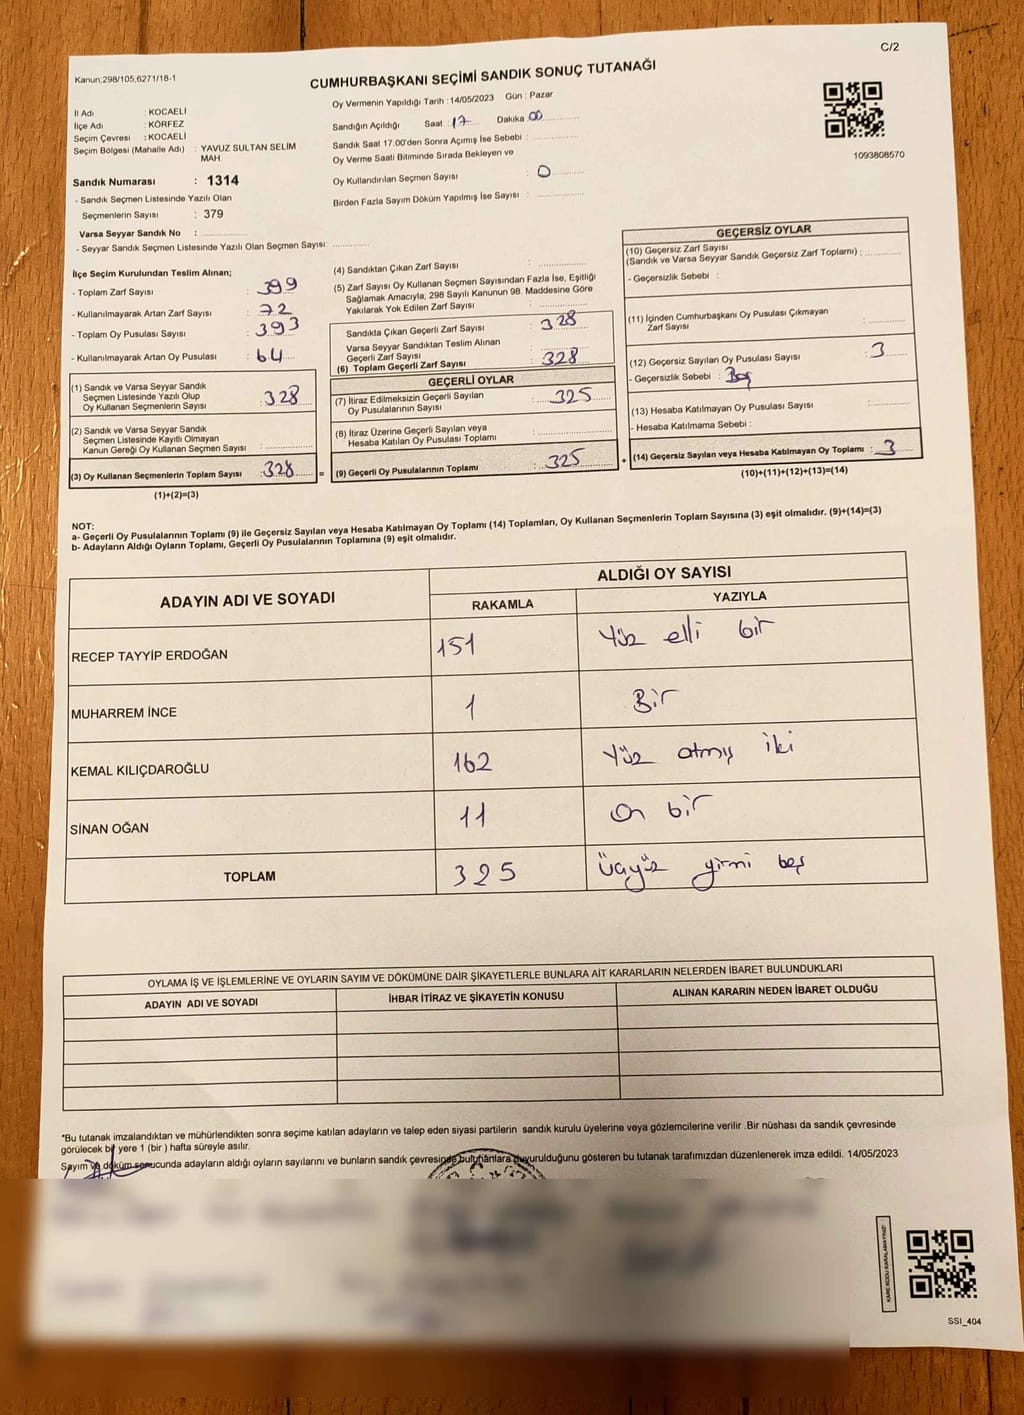 C/2
Kanun;298/105,6271/18-1
CUMHURBAŞKANI SEÇİMİ SANDIK SONUÇ TUTANAĞI
İl Adı : KOCAELİ
İlçe Adı : KÖRFEZ
Seçim Çevresi : KOCAELİ
Seçim Bölgesi (Mahalle Adı) : YAVUZ SULTAN SELİM
MAH.
Sandık Numarası : 1314
- Sandık Seçmen Listesinde Yazılı Olan
Seçmenlerin Sayısı : 379
Varsa Seyyar Sandık No :
- Seyyar Sandık Seçmen Listesinde Yazılı Olan Seçmen Sayısı:
Oy Vermenin Yapıldığı Tarih : 14/05/2023 Gün : Pazar
Sandığın Açıldığı Saat : 17 Dakika 00
Sandık Saat 17.00'den Sonra Açımış İse Sebebi :
Oy Verme Saati Bitiminde Sırada Bekleyen ve
Oy Kullandırılan Seçmen Sayısı : 0
Birden Fazla Sayım Döküm Yapılmış İse Sayısı :
1093808570
İlçe Seçim Kurulundan Teslim Alınan;
- Toplam Zarf Sayısı : 399
- Kullanılmayarak Artan Zarf Sayısı : 72
- Toplam Oy Pusulası Sayısı : 393
- Kullanılmayarak Artan Oy Pusulası : 64
(1) Sandık ve Varsa Seyyar Sandık
Seçmen Listesinde Yazılı Olup
Oy Kullanan Seçmenlerin Sayısı : 328
(2) Sandık ve Varsa Seyyar Sandık
Seçmen Listesinde Kayıtlı Olmayan
Kanun Gereği Oy Kullanan Seçmen Sayısı :
(3) Oy Kullanan Seçmenlerin Toplam Sayısı : 328 =
(1)+(2)=(3)
(4) Sandıktan Çıkan Zarf Sayısı :
(5) Zarf Sayısı Oy Kullanan Seçmen Sayısından Fazla İse, Eşitliği
Sağlamak Amacıyla, 298 Sayılı Kanunun 98. Maddesine Göre
Yakılarak Yok Edilen Zarf Sayısı :
Sandıkta Çıkan Geçerli Zarf Sayısı : 328
Varsa Seyyar Sandıktan Teslim Alınan
Geçerli Zarf Sayısı :
(6) Toplam Geçerli Zarf Sayısı : 328
GEÇERLİ OYLAR
(7) İtiraz Edilmeksizin Geçerli Sayılan
Oy Pusulalarının Sayısı : 325
(8) İtiraz Üzerine Geçerli Sayılan veya
Hesaba Katılan Oy Pusulası Toplamı :
(9) Geçerli Oy Pusulalarının Toplamı : 325 +
GEÇERSİZ OYLAR
(10) Geçersiz Zarf Sayısı
(Sandık ve Varsa Seyyar Sandık Geçersiz Zarf Toplamı) :
- Geçersizlik Sebebi :
(11) İçinden Cumhurbaşkanı Oy Pusulası Çıkmayan
Zarf Sayısı :
(12) Geçersiz Sayılan Oy Pusulası Sayısı : 3
- Geçersizlik Sebebi : Boş
(13) Hesaba Katılmayan Oy Pusulası Sayısı :
- Hesaba Katılmama Sebebi :
(14) Geçersiz Sayılan veya Hesaba Katılmayan Oy Toplamı : 3
(10)+(11)+(12)+(13)=(14)
NOT:
a- Geçerli Oy Pusulalarının Toplamı (9) ile Geçersiz Sayılan veya Hesaba Katılmayan Oy Toplamı (14) Toplamları, Oy Kullanan Seçmenlerin Toplam Sayısına (3) eşit olmalıdır. (9)+(14)=(3)
b- Adayların Aldığı Oyların Toplamı, Geçerli Oy Pusulalarının Toplamına (9) eşit olmalıdır.
ADAYIN ADI VE SOYADI ALDIĞI OY SAYISI
RAKAMLA YAZIYLA
RECEP TAYYİP ERDOĞAN 151 Yüz elli bir
MUHARREM İNCE 1 Bir
KEMAL KILIÇDAROĞLU 162 Yüz atmış iki
SİNAN OĞAN 11 On bir
TOPLAM 325 Üçyüz yirmi beş
OYLAMA İŞ VE İŞLEMLERİNE VE OYLARIN SAYIM VE DÖKÜMÜNE DAİR ŞİKAYETLERLE BUNLARA AİT KARARLARIN NELERDEN İBARET BULUNDUKLARI
ADAYIN ADI VE SOYADI İHBAR İTİRAZ VE ŞİKAYETİN KONUSU ALINAN KARARIN NEDEN İBARET OLDUĞU
*Bu tutanak imzalandıktan ve mühürlendikten sonra seçime katılan adayların ve talep eden siyasi partilerin sandık kurulu üyelerine veya gözlemcilerine verilir .Bir nüshası da sandık çevresinde
görülecek bir yere 1 (bir ) hafta süreyle asılır.
Sayım ve döküm sonucunda adayların aldığı oyların sayılarını ve bunların sandık çevresinde bulunanlara duyurulduğunu gösteren bu tutanak tarafımızdan düzenlenerek imza edildi. 14/05/2023
KARE KODU KARALAMAYINIZ!
SSI_404